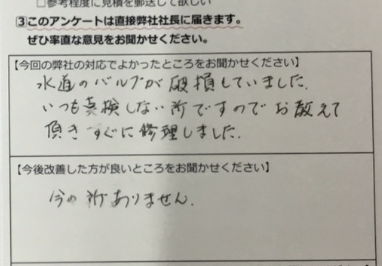 □参考程度に見積を郵送して欲しい
③このアンケートは直接弊社社長に届きます。
ぜひ率直な意見をお聞かせください。
【今回の弊社の対応でよかったところをお聞かせください】
水道のバルブが破損していました.
いつも点検しない所ですのでお教えて
頂きすぐに修理しました.
【今後改善した方が良いところをお聞かせください】
今の所ありません.